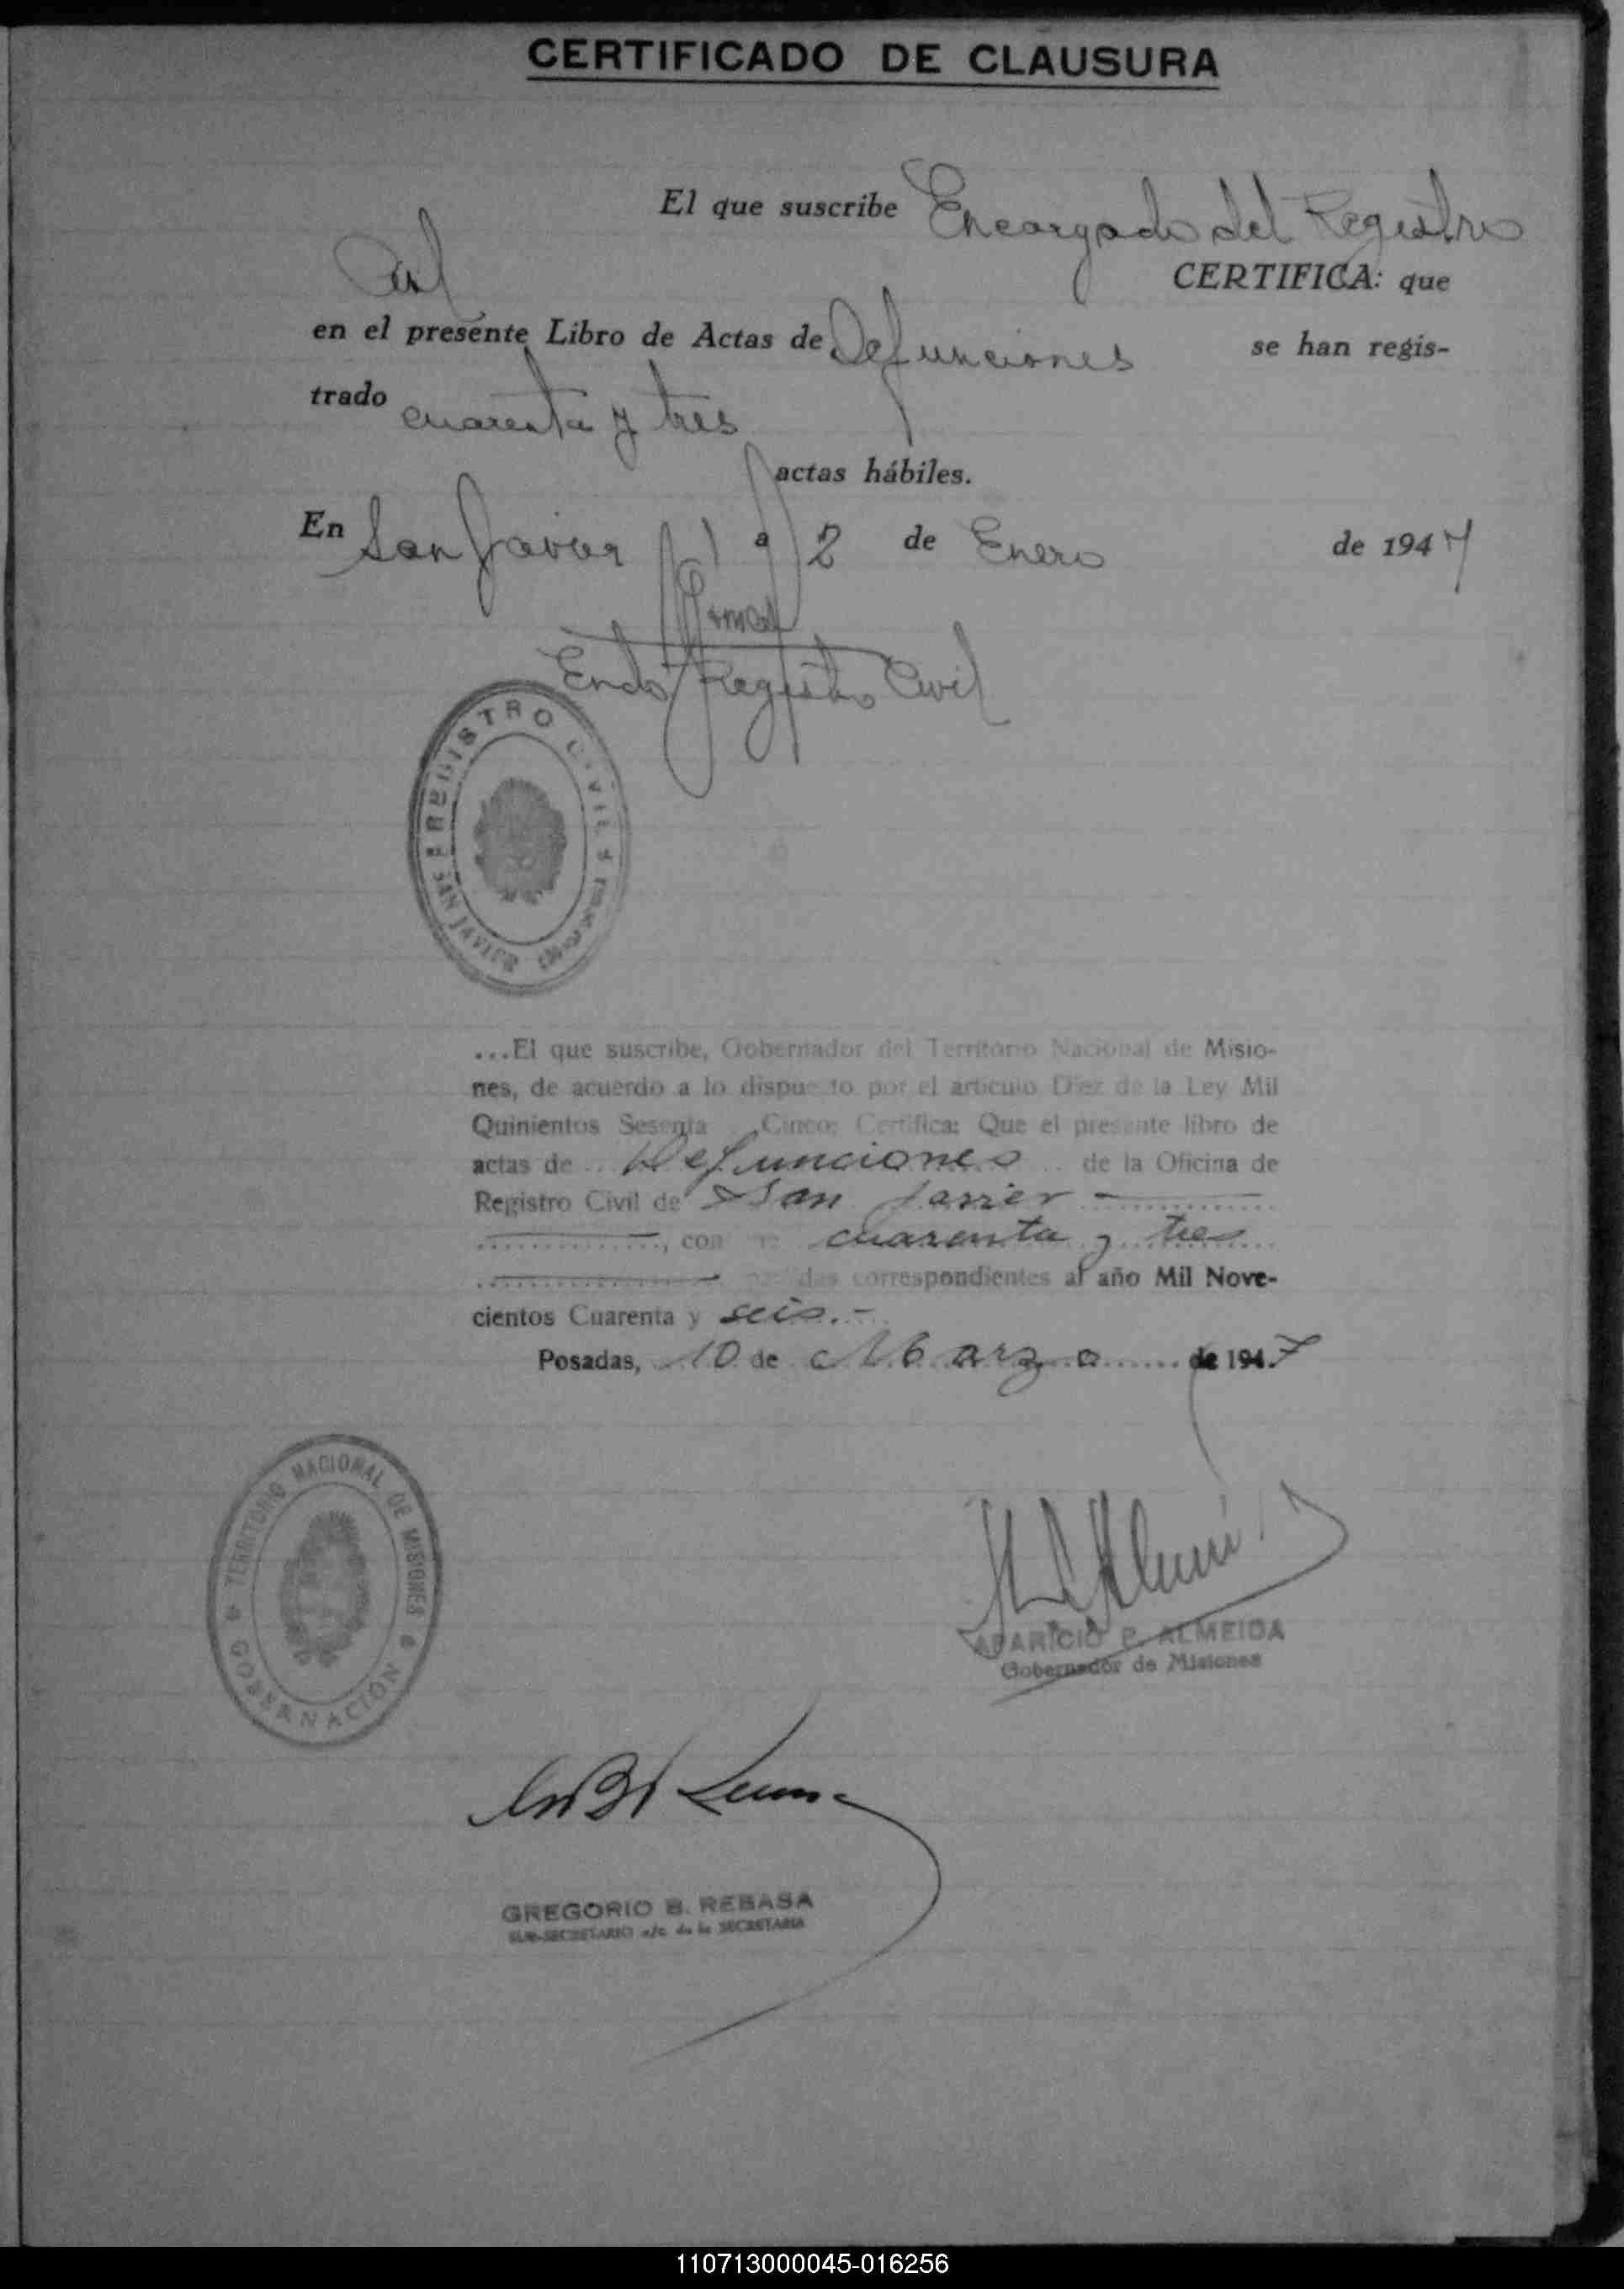 CERTIFICADO DE CLAUSURA
El que suscribe Encargado del Registro
Civil CERTIFICA: que
en el presente Libro de Actas de Defunciones se han regis-
trado cuarenta y tres
actas hábiles.
En San Javier a 2 de Enero de 1947
Encdo Registro Civil
REGISTRO CIVIL
SAN JAVIER
...El que suscribe, Gobernador del Territorio Nacional de Misio-
nes, de acuerdo a lo dispuesto por el artículo Diez de la Ley Mil
Quinientos Sesenta Cinco; Certifica: Que el presente libro de
actas de Defunciones de la Oficina de
Registro Civil de San Javier
cuarenta y tres
correspondientes al año Mil Nove-
cientos Cuarenta y seis.-
Posadas, 10 de Marzo de 1947
TERRITORIO NACIONAL DE MISIONES
GOBERNACION
APARICIO P. ALMEIDA
Gobernador de Misiones
GREGORIO B. REBASA
SUB-SECRETARIO a/c de la SECRETARIA
110713000045-016256